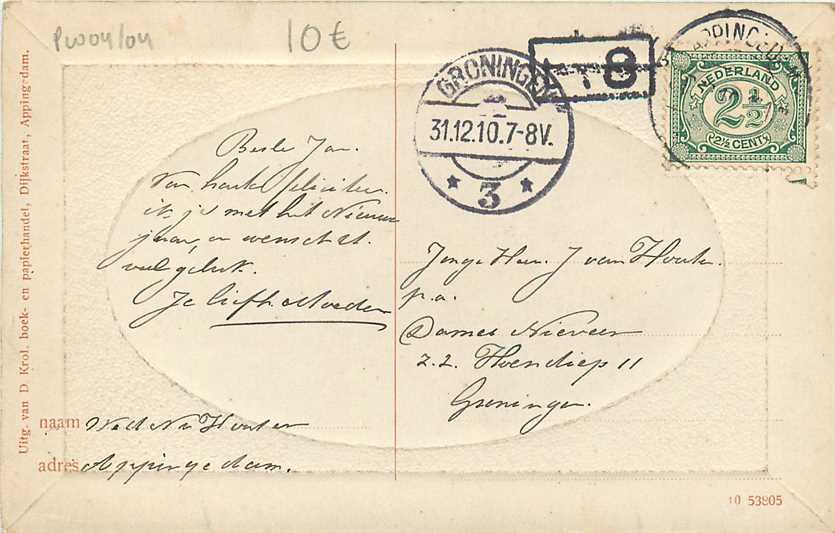 Pwoon/on
10 €
Uitg. van D Krol, boek- en papierhandel, Dijkstraat, Appingedam.
GRONINGEN
31.12.10.7-8V.
3
8
APPINGEDAM
NEDERLAND
2½
2½ CENT
Beste Jan.
Van harte feliciteer
ik je met het Nieuwe
jaar, en wensch U.
veel geluk.
Je liefh. Moeder
Jonge Heer J van Houten.
p.a.
Dames Nieveen
z.z. Hoendiep 11
Groningen.
naam Wed Houten
adres Appingedam.
10 53805